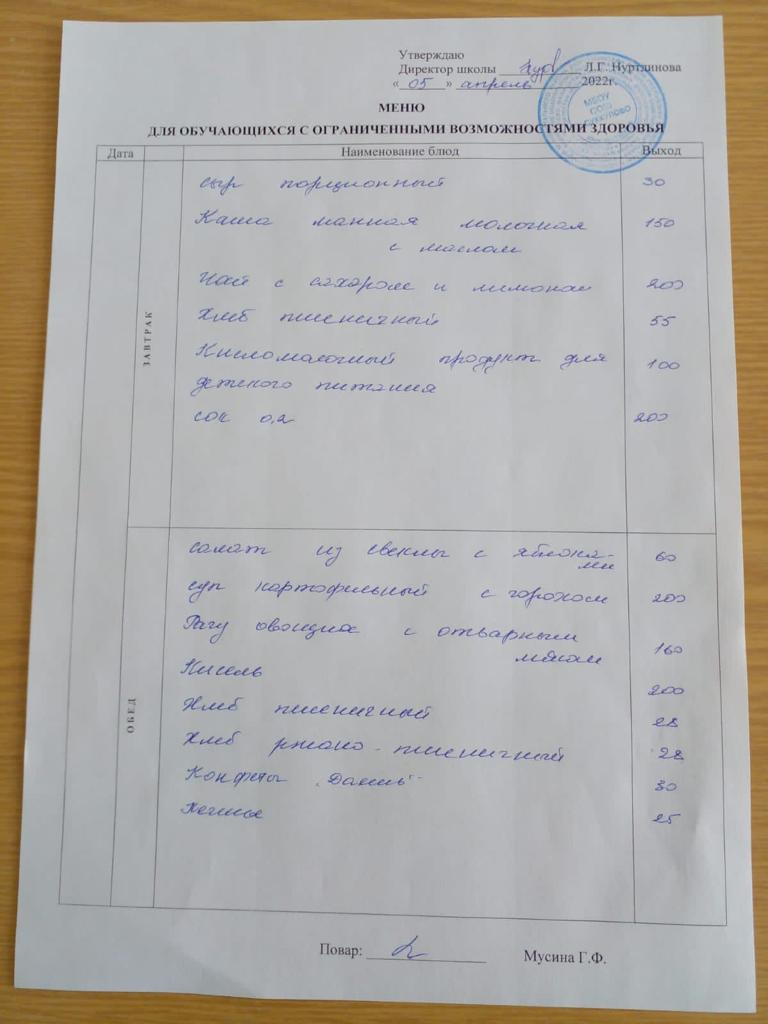 Утверждаю
Директор школы Л.Г. Нуртдинова
«05» апрель 2022г.
МБОУ
СОШ
МЕНЮ
ДЛЯ ОБУЧАЮЩИХСЯ С ОГРАНИЧЕННЫМИ ВОЗМОЖНОСТЯМИ ЗДОРОВЬЯ
Дата Наименование блюд Выход
ЗАВТРАК
сыр порционный 30
Каша манная молочная 150
с маслом
Чай с сахаром и лимоном 200
Хлеб пшеничный 55
Кисломолочный продукт для 100
детского питания
сок 0,2 200
ОБЕД
салат из свеклы с яблока- 60
ми
суп картофельный с горохом 200
Рагу овощное с отварным 160
мясом
Кисель 200
Хлеб пшеничный 28
Хлеб ржано-пшеничный 28
Конфеты 30
25
Повар: Мусина Г.Ф.